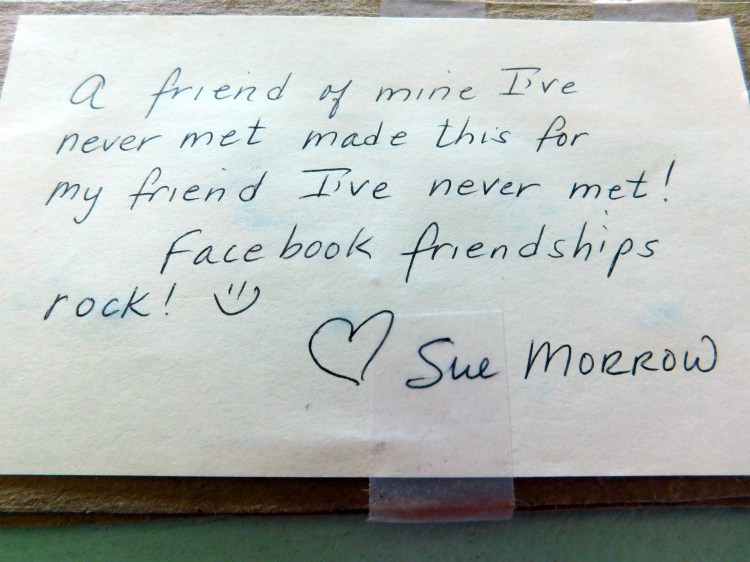 A friend of mine I've
never met made this for
my friend I've never met!
Facebook friendships
rock!
Sue MORROW